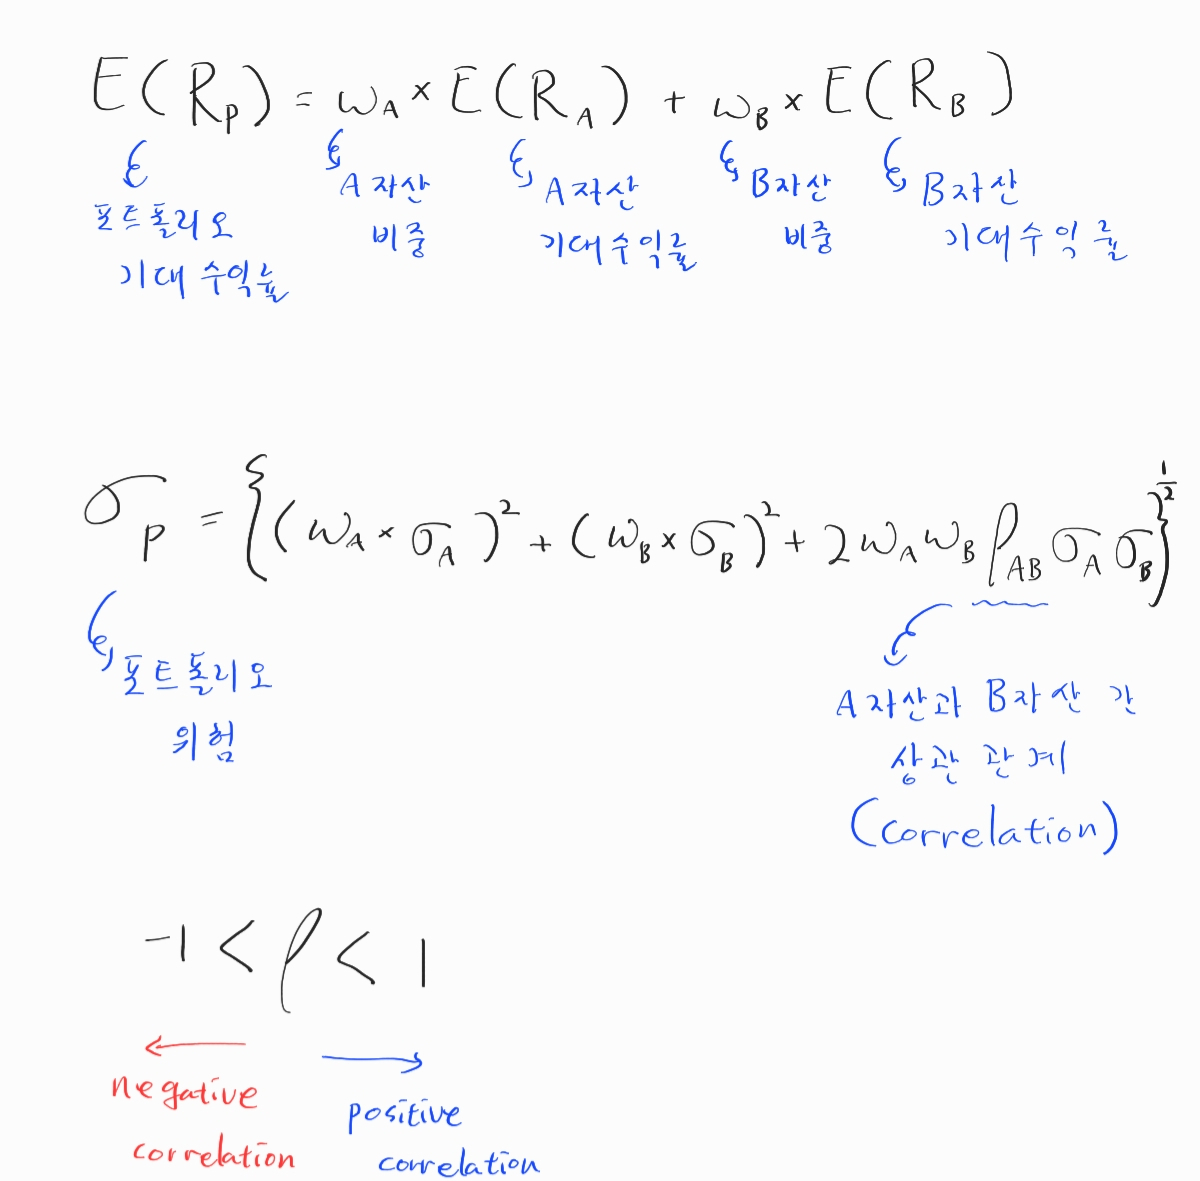 E(R_P) = w_A × E(R_A) + w_B × E(R_B)
포트폴리오
기대 수익률
A 자산
비중
A 자산
기대수익률
B자산
비중
B자산
기대수익률
σ_P = {(w_A × σ_A)² + (w_B × σ_B)² + 2w_A w_B ρ_AB σ_A σ_B}^½
포트폴리오
위험
A 자산과 B자산 간
상관관계
(correlation)
-1 < ρ < 1
negative
correlation
positive
correlation